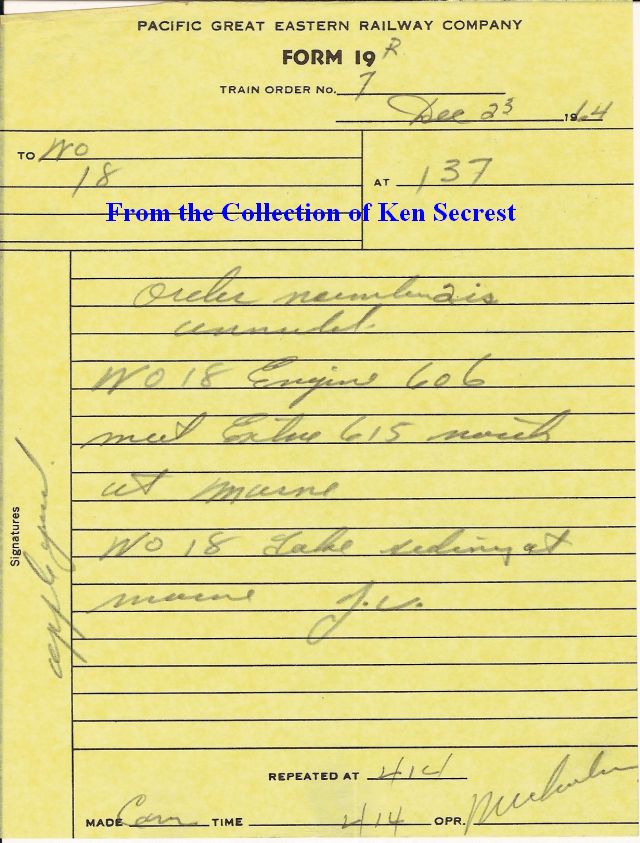 PACIFIC GREAT EASTERN RAILWAY COMPANY
FORM 19 R
TRAIN ORDER No. 7
Dec 23 1964
TO NO
18
AT 137
From the Collection of Ken Secrest
Order number 2 is
annulled
NO 18 Engine 606
meet Extra 615 north
at Marne
NO 18 Take siding at
marne J.V.
Signatures
REPEATED AT 414
MADE Com TIME 414 OPR.